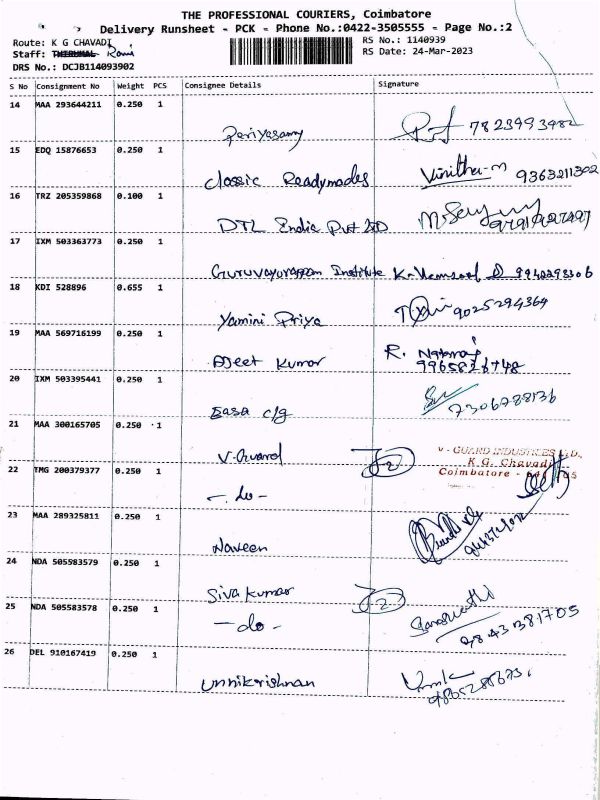 THE PROFESSIONAL COURIERS, Coimbatore
Delivery Runsheet - PCK - Phone No.:0422-3505555 - Page No.:2
Route: K G CHAVADI
RS No.: 1140939
Staff: THIRUMAL Ravi
RS Date: 24-Mar-2023
DRS No.: DCJB114093902
S No Consignment No Weight PCS Consignee Details Signature
14 MAA 293644211 0.250 1
Periyasamy 7823993482
15 EDQ 15876653 0.250 1
Classic Readymades Vinitha-m 9363211302
16 TRZ 205359868 0.100 1
DTL India Pvt LTD
17 IXM 503363773 0.250 1
Guruvayurappan Institute
18 KDI 528896 0.655 1
Yamini Priya 9025294364
19 MAA 569716199 0.250 1
Ajeet Kumar R. Nataraj
9965826748
20 IXM 503395441 0.250 1
Easa c/g 7306788136
21 MAA 300165705 0.250 1
V-Guard 2 V - GUARD INDUSTRIES LTD.,
K.G. Chavadi
22 TMG 200379377 0.250 1
Coimbatore - 641 105
- do -
23 MAA 289325811 0.250 1
Naveen
24 NDA 505583579 0.250 1
Siva kumar 2
25 NDA 505583578 0.250 1
- do - Saraswathi
9843381705
26 DEL 910167419 0.250 1
unnikrishnan